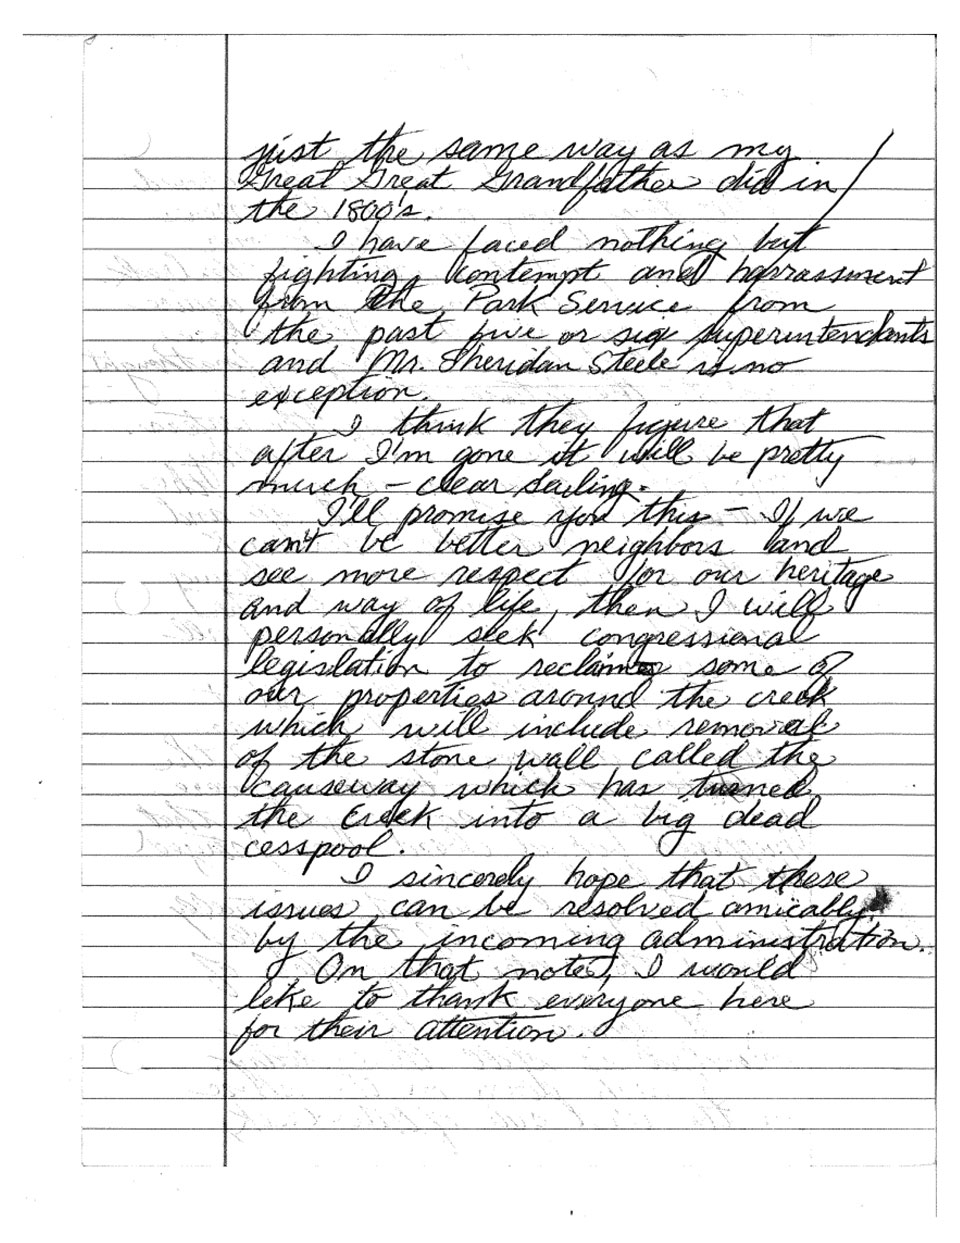 just the same way as my
Great Great Grandfather did in
the 1800's.
I have faced nothing but
fighting, contempt and harrassment
from the Park Service from
the past five or six superintendants
and Mr. Sheridan Steele is no
exception.
I think they figure that
after I'm gone it will be pretty
much - clear sailing.
I'll promise you this - If we
can't be better neighbors and
see more respect for our heritage
and way of life, then I will
personally seek congressional
legislation to reclaim some of
our properties around the creek
which will include removal
of the stone wall called the
causeway which has turned
the creek into a big dead
cesspool.
I sincerely hope that these
issues can be resolved amicably
by the incoming administration.
On that note, I would
like to thank everyone here
for their attention.